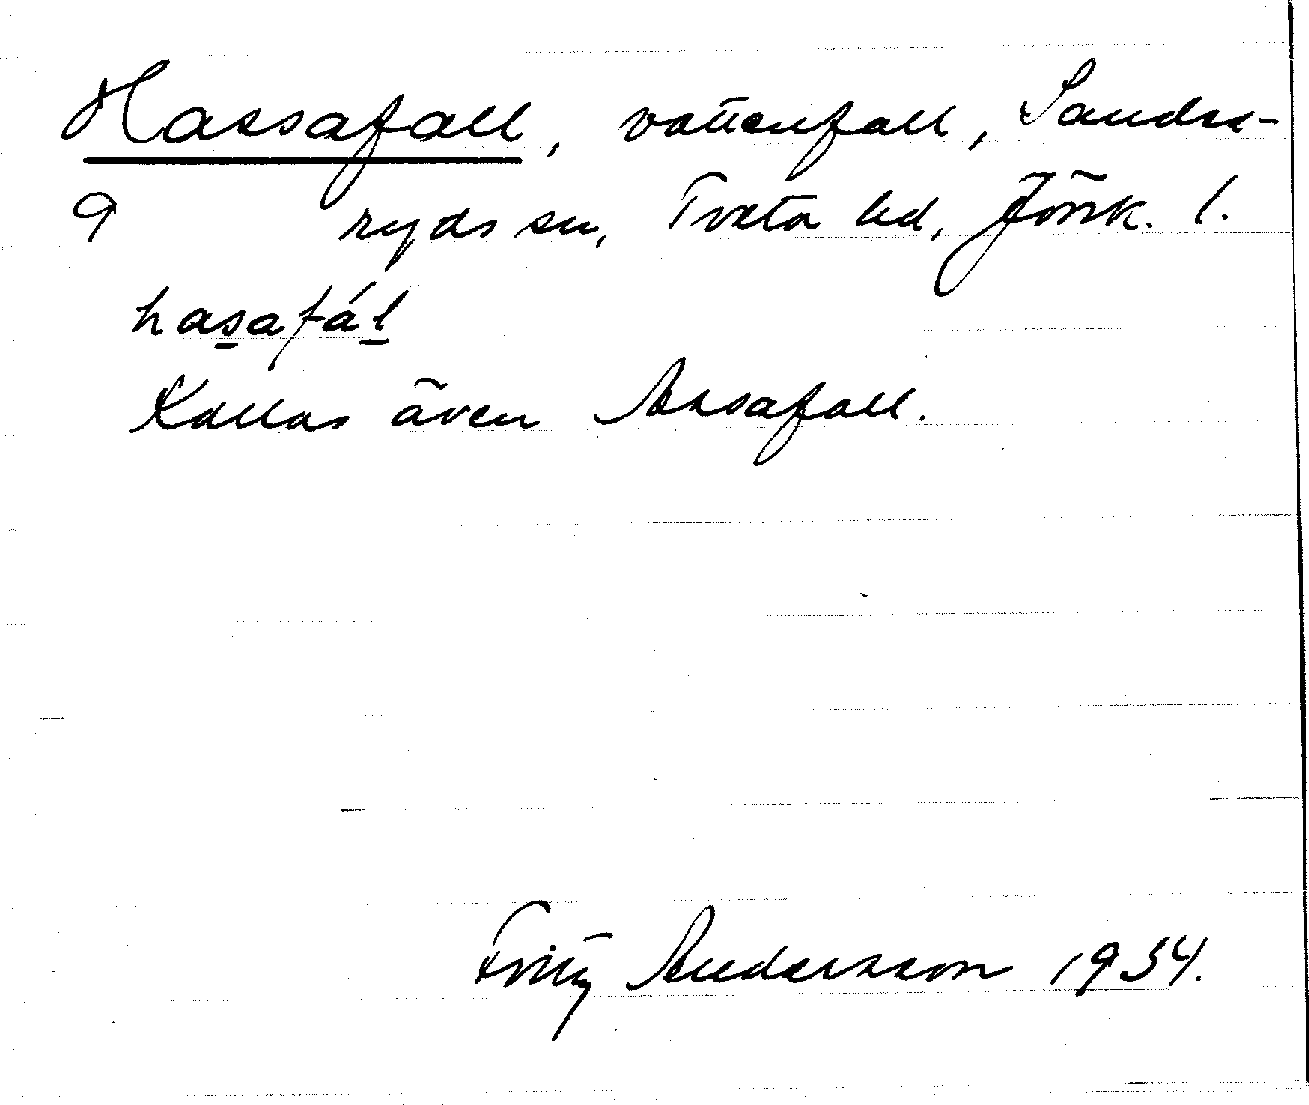 Hassafall, vattenfall, Sandse-
9 ryds sn, Tveta hd, Jönk. l.
hasafál
Kallas även Assafall.
Fritz Andersson 1934.